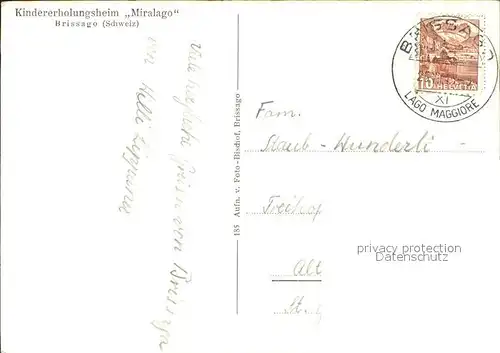 Kindererholungsheim „Miralago"
Brissago (Schweiz)
Viele herzliche Grüsse von Brissago
von Willi
185 Aufn. v. Foto-Bischof, Brissago
BRISSAGO
XI
LAGO MAGGIORE
15
HELVETIA
Fam.
Staub-Wunderli
Freihof
Alt
privacy protection
Datenschutz